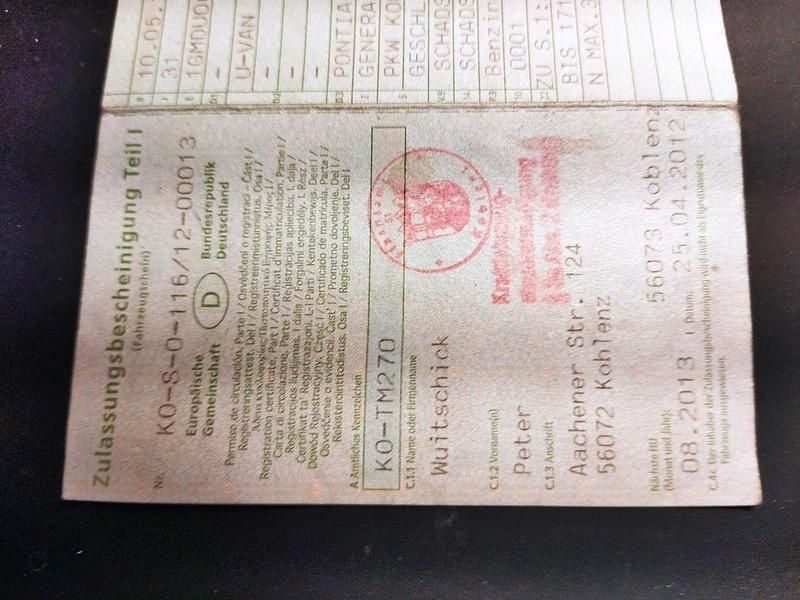 Zulassungsbescheinigung Teil I
(Fahrzeugschein)
Nr. KO-S-0-116/12-00013
Europäische
Gemeinschaft
D
Bundesrepublik
Deutschland
Permiso de circulación. Parte I / Osvědčení o registraci - Část I /
Registreringsattest. Del I / Registreerimistunnistus. Osa I /
Άδεια κυκλοφορίας. Μέρος I /
Registration certificate. Part I / Certificat d'immatriculation. Partie I /
Carta di circolazione. Parte I / Reģistrācijas apliecība. I. daļa /
Registracijos liudijimas. I dalis / Forgalmi engedély. I. Rész /
Ċertifikat ta' Reġistrazzjoni. L-I Parti / Kentekenbewijs. Deel I /
Dowód Rejestracyjny. Część I / Certificado de matrícula. Parte I /
Osvedčenie o evidencii. Časť I / Prometno dovoljenje. Del I /
Rekisteröintitodistus. Osa I / Registreringsbeviset. Del I
A Amtliches Kennzeichen
KO-TM270
C.1.1 Name oder Firmenname
Wuitschick
C.1.2 Vorname(n)
Peter
C.1.3 Anschrift
Aachener Str. 124
56072 Koblenz
56073 Koblenz
Nächste HU
(Monat und Jahr):
08.2013
Datum:
25.04.2012
C.4c Der Inhaber der Zulassungsbescheinigung wird nicht als Eigentümer des
Fahrzeugs ausgewiesen.
B 10.05.
J 31
E 1GMDU0
D.1 -
U-VAN
D.2 -
-
-
D.3 PONTIA
2 GENERA
5 PKW KO
GESCHL
V.9 SCHADS
14 SCHADS
P.3 Benzin
10 0001
22 ZU S.1:
BIS 171
N MAX.3